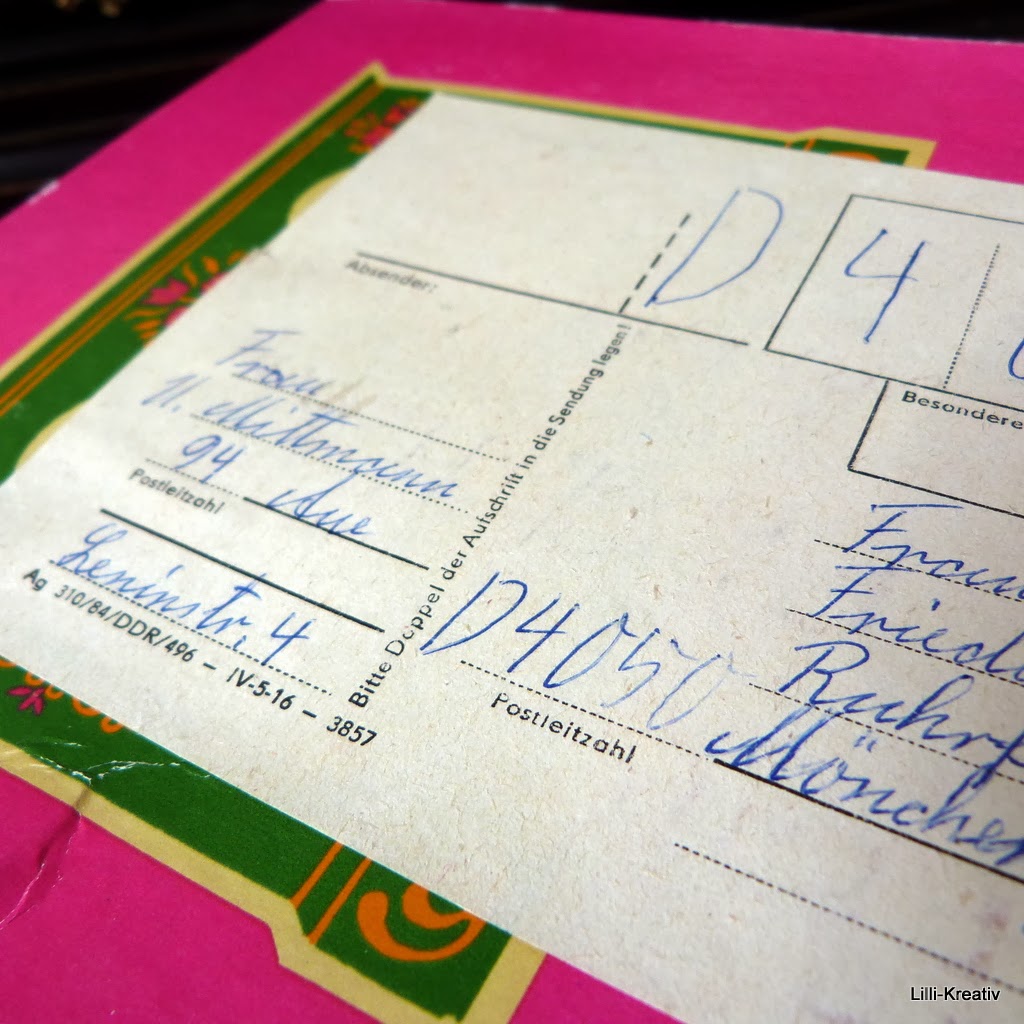 Absender:
Frau
U. Mittmann
94
Aue
Postleitzahl
Leninstr. 4
Ag 310/84/DDR/496 – IV-5-16 – 3857
Bitte Doppel der Aufschrift in die Sendung legen!
D 4
Besondere
Frau
D4050
Postleitzahl
Lilli-Kreativ